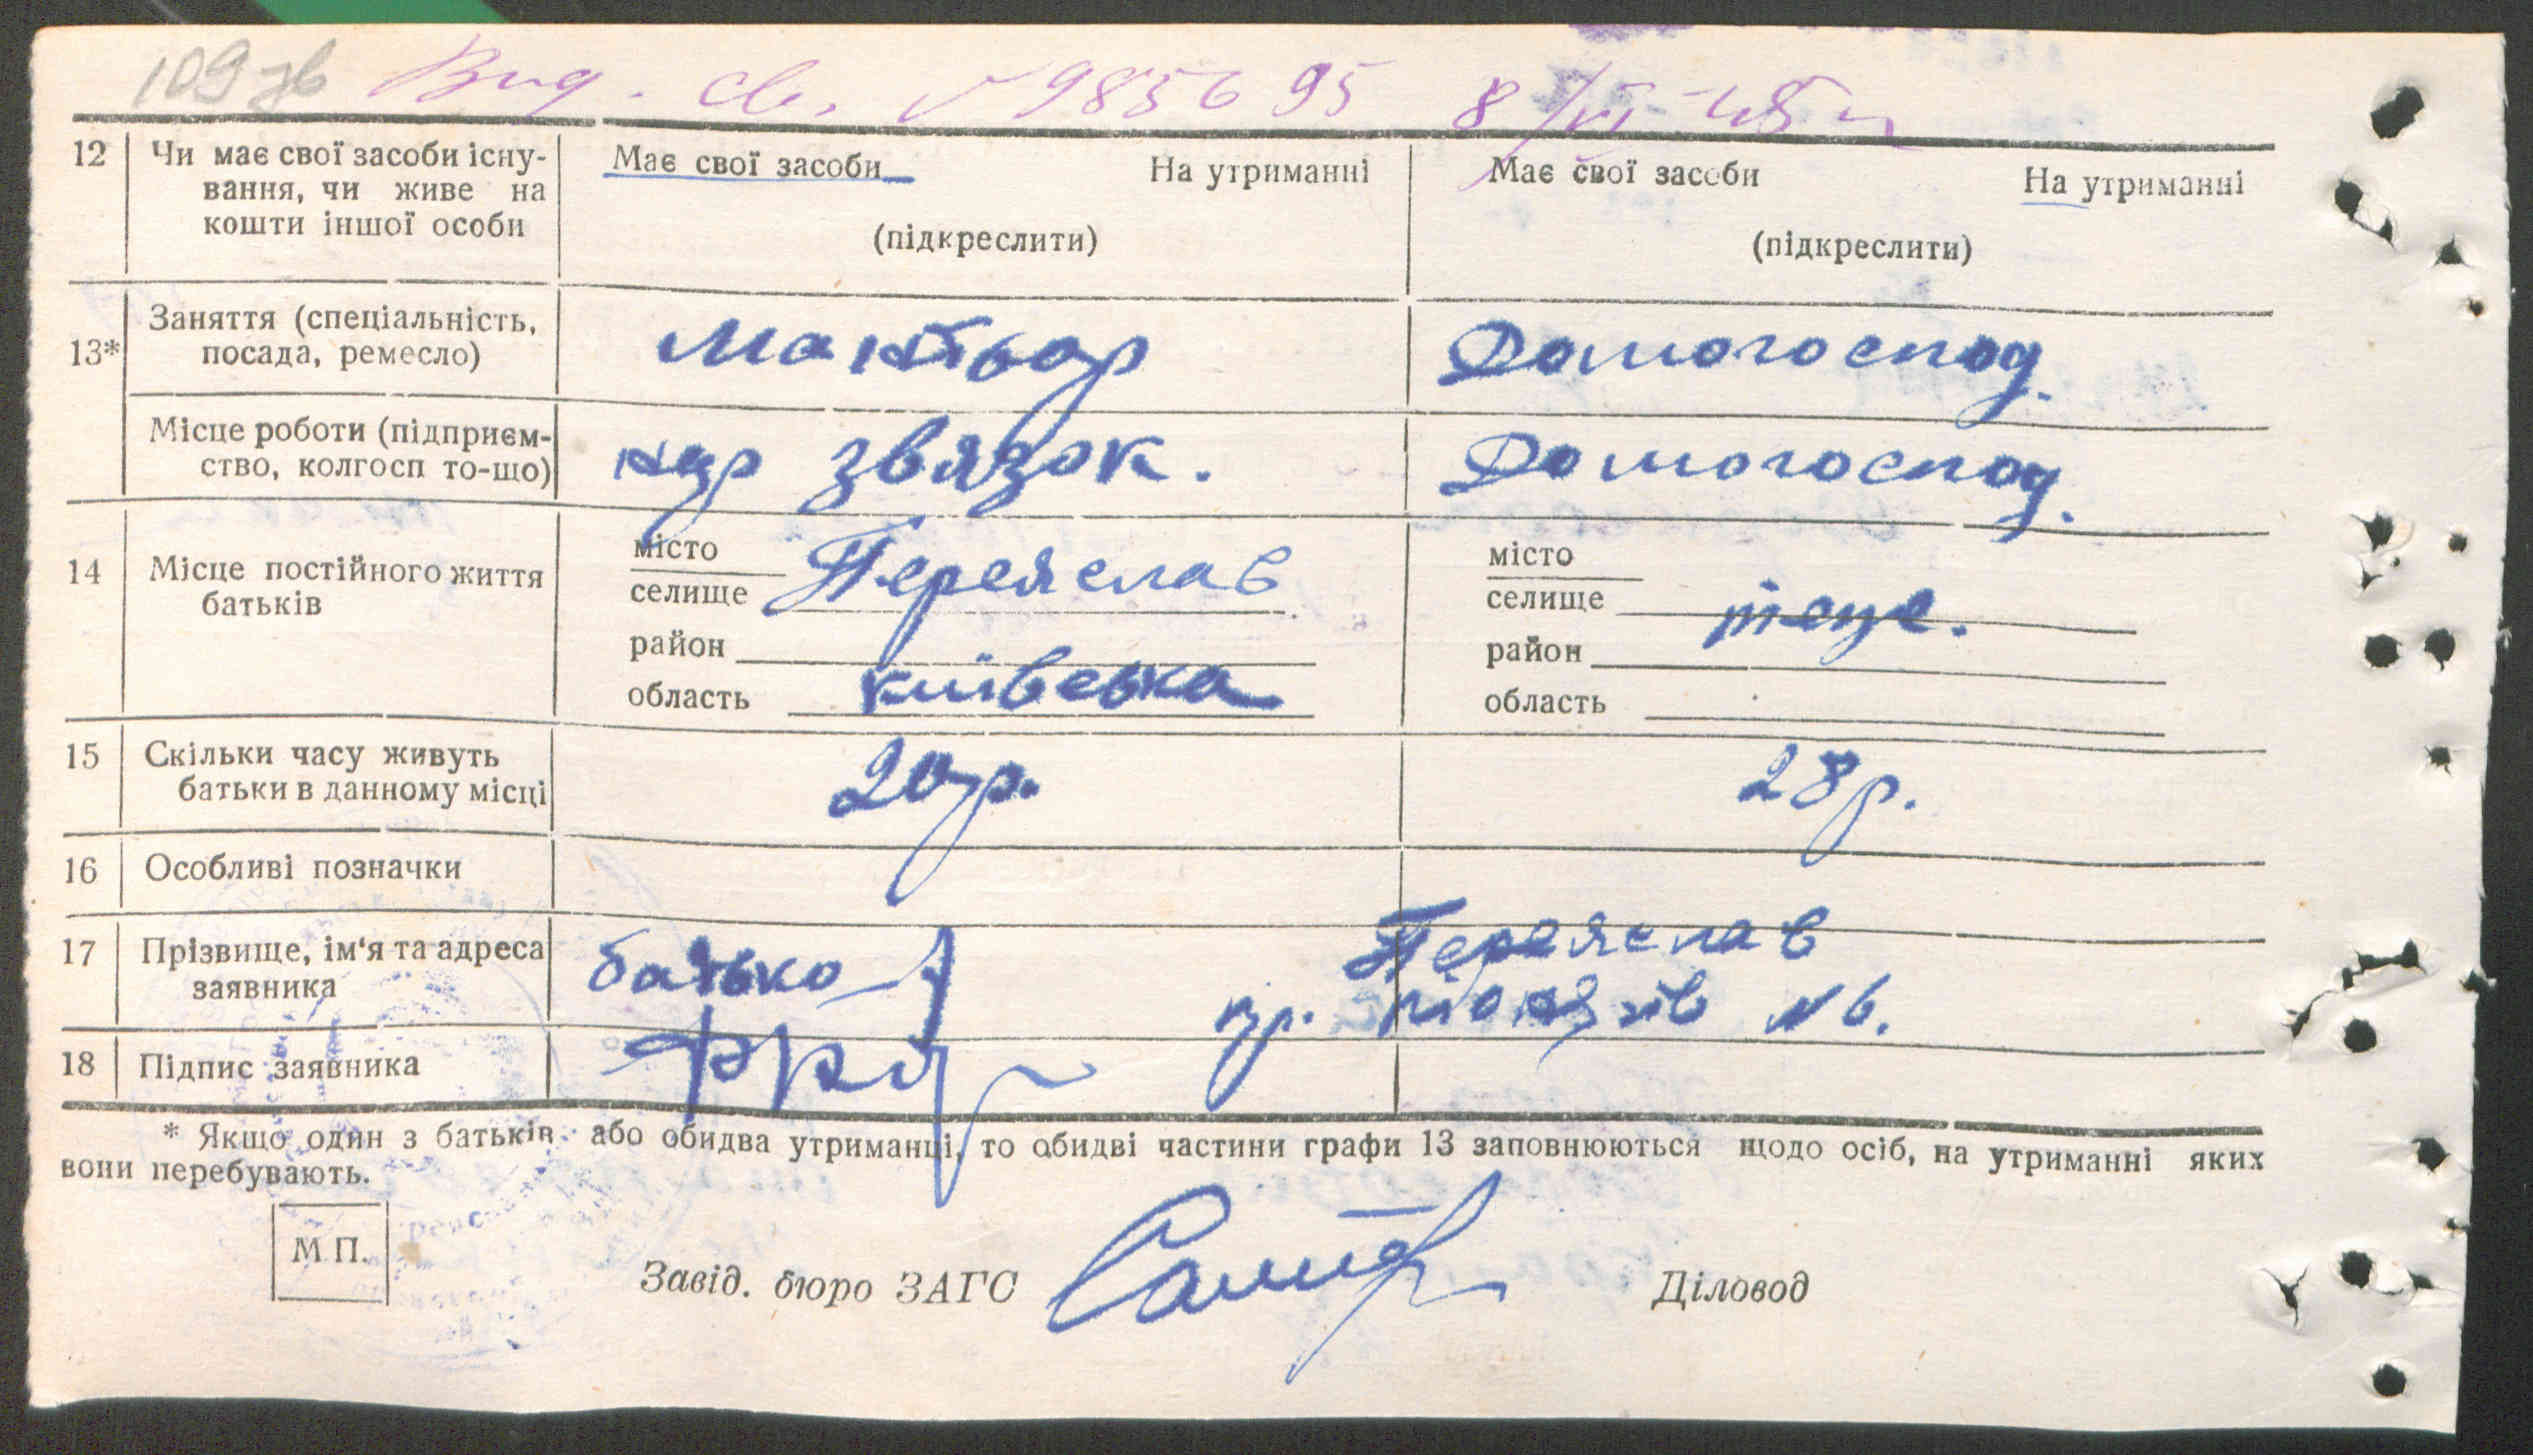 109 зв Вид. св. № 985695 8/VI-45 р
12 Чи має свої засоби існу- Має свої засоби На утриманні Має свої засоби На утриманні
вання, чи живе на
кошти іншої особи (підкреслити) (підкреслити)
13* Заняття (спеціальність, Домогоспод.
посада, ремесло)
Місце роботи (підприєм- звязок. Домогоспод.
ство, колгосп то-що)
14 Місце постійного життя місто Переяслав місто
батьків селище селище теже.
район район
область київська область
15 Скільки часу живуть 20 р. 28 р.
батьки в данному місці
16 Особливі позначки
17 Прізвище, ім'я та адреса батько Переяслав
заявника № 6.
18 Підпис заявника
* Якщо один з батьків або обидва утриманці, то обидві частини графи 13 заповнюються щодо осіб, на утриманні яких
вони перебувають.
М.П.
Завід. бюро ЗАГС Діловод